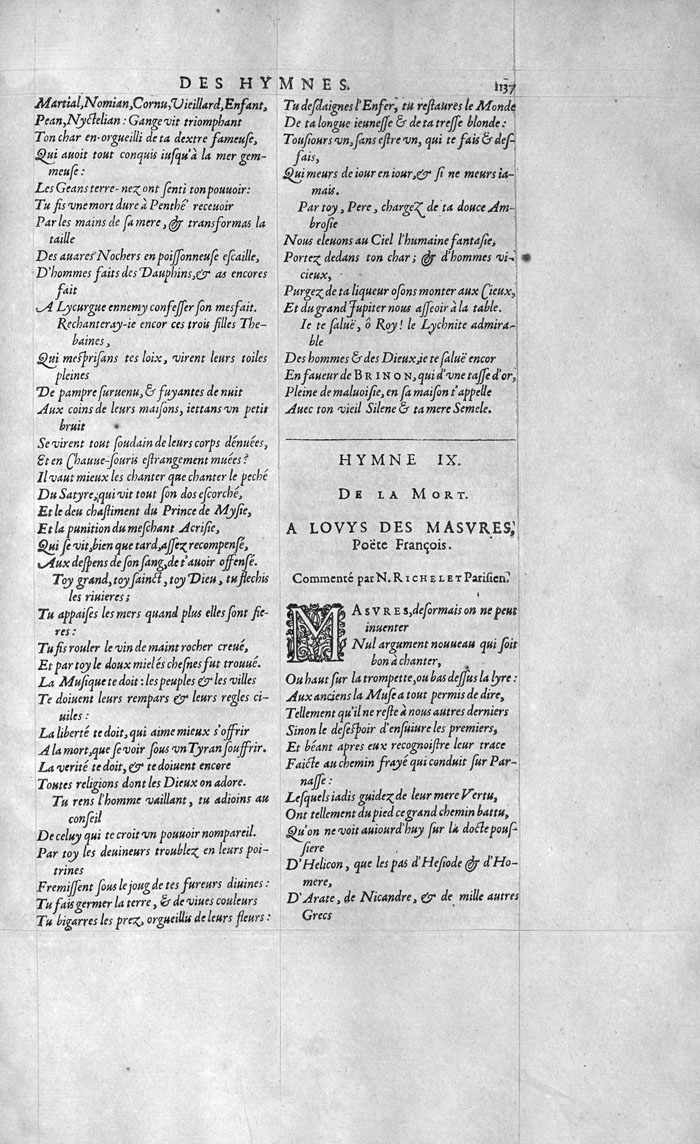 DES HYMNES. 1137
Martial, Nomian, Cornu, Vieillard, Enfant,
Pean, Nyctelian: Gange vit triomphant
Ton char en-orgueilli de ta dextre fameuse,
Qui auoit tout conquis iusqu'à la mer gem-
meuse:
Les Geans terre-nez ont senti ton pouuoir:
Tu fis vne mort dure à Penthé receuoir
Par les mains de sa mere, & transformas la
taille
Des auares Nochers en poissonneuse escaille,
D'hommes faits des Dauphins, & as encores
fait
A Lycurgue ennemy confesser son mesfait.
Rechanteray-ie encor ces trois filles The-
baines,
Qui mesprisans tes loix, virent leurs toiles
pleines
De pampre suruenu, & fuyantes de nuit
Aux coins de leurs maisons, iettans vn petit
bruit
Se virent tout soudain de leurs corps dénuées,
Et en Chauue-souris estrangement muées?
Il vaut mieux les chanter que chanter le peché
Du Satyre, qui vit tout son dos escorché,
Et le deu chastiment du Prince de Mysie,
Et la punition du meschant Acrisie,
Qui se vit, bien que tard, assez recompensé,
Aux despens de son sang, de t'auoir offensé.
Toy grand, toy sainct, toy Dieu, tu flechis
les riuieres;
Tu appaises les mers quand plus elles sont fie-
res:
Tu fis rouler le vin de maint rocher creué,
Et par toy le doux miel és chesnes fut trouué.
La Musique te doit: les peuples & les villes
Te doiuent leurs rempars & leurs regles ci-
uiles:
La liberté te doit, qui aime mieux s'offrir
A la mort, que se voir sous vn Tyran souffrir.
La verité te doit, & te doiuent encore
Toutes religions dont les Dieux on adore.
Tu rens l'homme vaillant, tu adioins au
conseil
De celuy qui te croit vn pouuoir nompareil.
Par toy les deuineurs troublez en leurs poi-
trines
Fremissent sous le joug de tes fureurs diuines:
Tu fais germer la terre, & de viues couleurs
Tu bigarres les prez, orgueillis de leurs fleurs:
Tu desdaignes l'Enfer, tu restaures le Monde
De ta longue ieunesse & de ta tresse blonde:
Tousiours vn, sans estre vn, qui te fais & des-
fais,
Qui meurs de iour en iour, & si ne meurs ia-
mais.
Par toy, Pere, chargez de ta douce Am-
brosie
Nous eleuons au Ciel l'humaine fantasie,
Portez dedans ton char; & d'hommes vi-
cieux,
Purgez de ta liqueur osons monter aux Cieux,
Et du grand Jupiter nous asseoir à la table.
Ie te saluë, ô Roy! le Lychnite admira-
ble
Des hommes & des Dieux, ie te saluë encor
En faueur de BRINON, qui d'vne tasse d'or,
Pleine de maluoisie, en sa maison t'appelle
Auec ton vieil Silene & ta mere Semele.
HYMNE IX.
DE LA MORT.
A LOVYS DES MASVRES,
Poëte François.
Commenté par N. RICHELET Parisien.
MASVRES, desormais on ne peut
inuenter
Nul argument nouueau qui soit
bon à chanter,
Ou haut sur la trompette, ou bas dessus la lyre:
Aux anciens la Muse a tout permis de dire,
Tellement qu'il ne reste à nous autres derniers
Sinon le desespoir d'ensuiure les premiers,
Et béant apres eux recognoistre leur trace
Faicte au chemin frayé qui conduit sur Par-
nasse:
Lesquels iadis guidez de leur mere Vertu,
Ont tellement du pied ce grand chemin battu,
Qu'on ne voit auiourd'huy sur la docte pous-
siere
D'Helicon, que les pas d'Hesiode & d'Ho-
mere,
D'Arate, de Nicandre, & de mille autres
Grecs